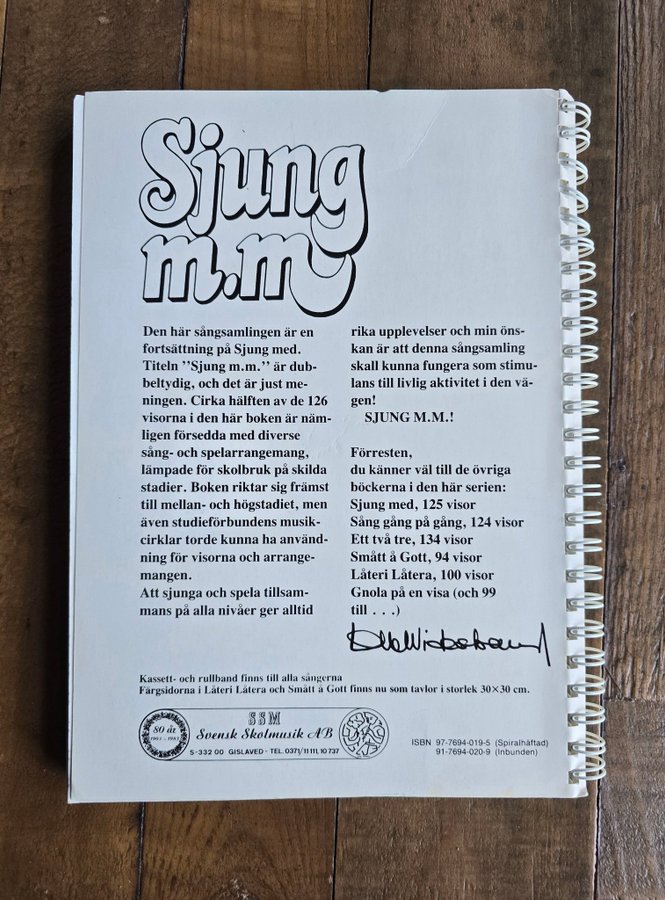 Sjung
m.m
Den här sångsamlingen är en
fortsättning på Sjung med.
Titeln ”Sjung m.m.” är dub-
beltydig, och det är just me-
ningen. Cirka hälften av de 126
visorna i den här boken är näm-
ligen försedda med diverse
sång- och spelarrangemang,
lämpade för skolbruk på skilda
stadier. Boken riktar sig främst
till mellan- och högstadiet, men
även studieförbundens musik-
cirklar torde kunna ha använd-
ning för visorna och arrange-
mangen.
Att sjunga och spela tillsam-
mans på alla nivåer ger alltid
rika upplevelser och min öns-
kan är att denna sångsamling
skall kunna fungera som stimu-
lans till livlig aktivitet i den vä-
gen!
SJUNG M.M.!
Förresten,
du känner väl till de övriga
böckerna i den här serien:
Sjung med, 125 visor
Sång gång på gång, 124 visor
Ett två tre, 134 visor
Smått å Gott, 94 visor
Låteri Låtera, 100 visor
Gnola på en visa (och 99
till . . .)
Kassett- och rullband finns till alla sångerna
Färgsidorna i Låteri Låtera och Smått å Gott finns nu som tavlor i storlek 30×30 cm.
80 år
1903 - 1983
SSM
Svensk Skolmusik AB
S-332 00 GISLAVED - TEL. 0371/11 111, 10 737
ISBN 97-7694-019-5 (Spiralhäftad)
91-7694-020-9 (Inbunden)